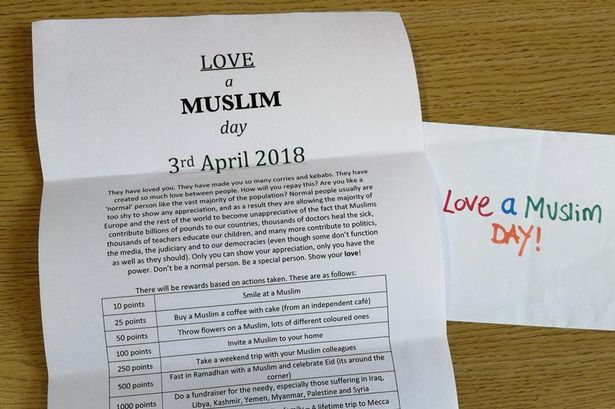 LOVE
a
MUSLIM
day
3rd April 2018
They have loved you. They have made you so many curries and kebabs. They have
created so much love between people. How will you repay this? Are you like a
'normal' person like the vast majority of the population? Normal people usually are
too shy to show any appreciation, and as a result they are allowing the majority of
Europe and the rest of the world to become unappreciative of the fact that Muslims
contribute billions of pounds to our countries, thousands of doctors heal the sick,
thousands of teachers educate our children, and many more contribute to politics,
the media, the judiciary and to our democracies (even though some don't function
as well as they should). Only you can show your appreciation, only you have the
power. Don't be a normal person. Be a special person. Show your love!
There will be rewards based on actions taken. These are as follows:
10 points Smile at a Muslim
25 points Buy a Muslim a coffee with cake (from an independent café)
50 points Throw flowers on a Muslim, lots of different coloured ones
100 points Invite a Muslim to your home
250 points Take a weekend trip with your Muslim colleagues
500 points Fast in Ramadhan with a Muslim and celebrate Eid (its around the
corner)
1000 points Do a fundraiser for the needy, especially those suffering in Iraq,
Libya, Kashmir, Yemen, Myanmar, Palestine and Syria
family - A lifetime trip to Mecca
Love a Muslim
DAY!